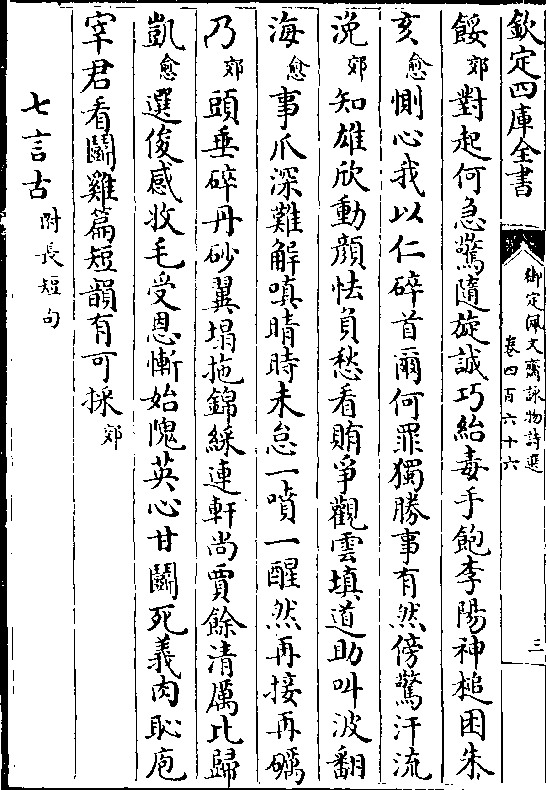 欽定四庫全書
御定佩文齋詠物詩選
卷四百六十六
三
餒郊對起何急驚隨旋誠巧紿毒手飽李陽神槌困朱
亥愈惻心我以仁碎首爾何罪獨勝事有然傍驚汗流
浼郊知雄欣動顔怯負愁看賄爭觀雲填道助叫波翻
海愈事爪深難解嗔睛時未怠一噴一醒然再接再礪
乃郊頭垂碎丹砂翼塌拖錦綵連軒尚賈餘清厲比歸
凱愈選俊感收毛受恩慚始隗英心甘鬭死義肉恥庖
宰君看鬭雞篇短韻有可採郊
七言古附長短句